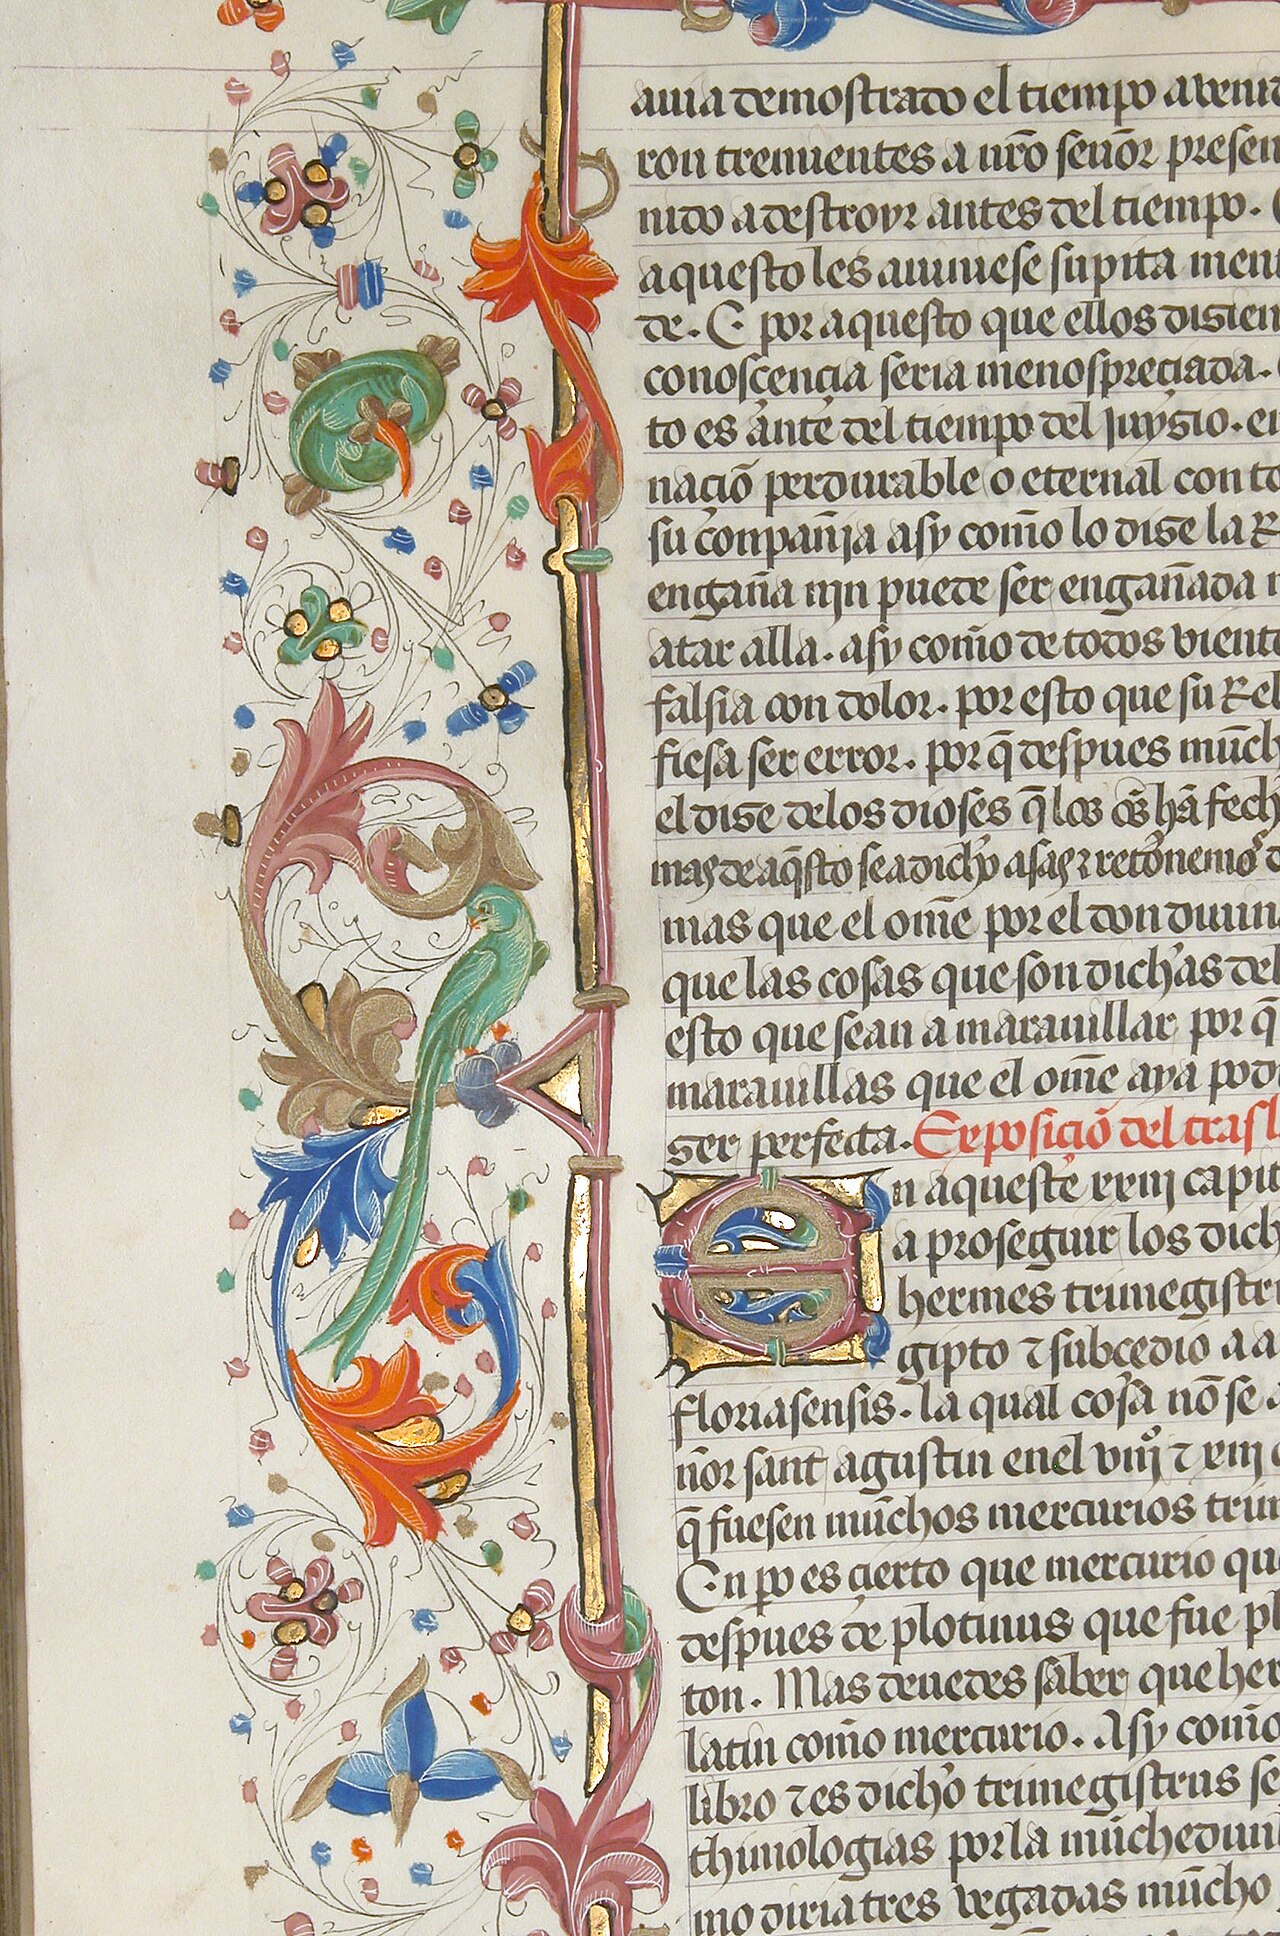 auia demostrado el tiempo aueni
ron tremientes a nr̃o señor presen
nido a destroyr antes del tiempo.
aquesto les auiniese supita men
de. E por aquesto que ellos disien
conoscencia seria menospreciada.
to es ante del tiempo del juysio. en
nació perdurable o eternal con to
su conpañja asy com̃o lo dise la Re
engaña njn puede ser engañada n
atar alla. asy com̃o de todos vient
falsia con dolor. por esto que su Rel
fiesa ser error. por q̃ despues mũch
el dise de los dioses q̃ los om̃s hã fech
mas de aq̃sto sea dicho asas ⁊ retornemos
mas que el om̃e por el don diuin
que las cosas que son dichas del
esto que sean a marauillar por q̃
marauillas que el om̃e aya pod
ser perfecta. Exposició del trasl
En aqueste xxiij capit
a proseguir los dich
hermes trimegistr
gipto ⁊ subcedio a a
floriasensis. la qual cosa nõ se
ñor sant agustin en el viijº ⁊ xiij
q̃ fuesen mũchos mercurios trim
En po es cierto que mercurio qu
despues de plotinus que fue pl
ton. Mas deuedes saber que her
latin com̃o mercurio. Asy com̃o
libro ⁊ es dicho trimegistrus se
thimologias por la mũchedun
mo diria tres vegadas mũcho